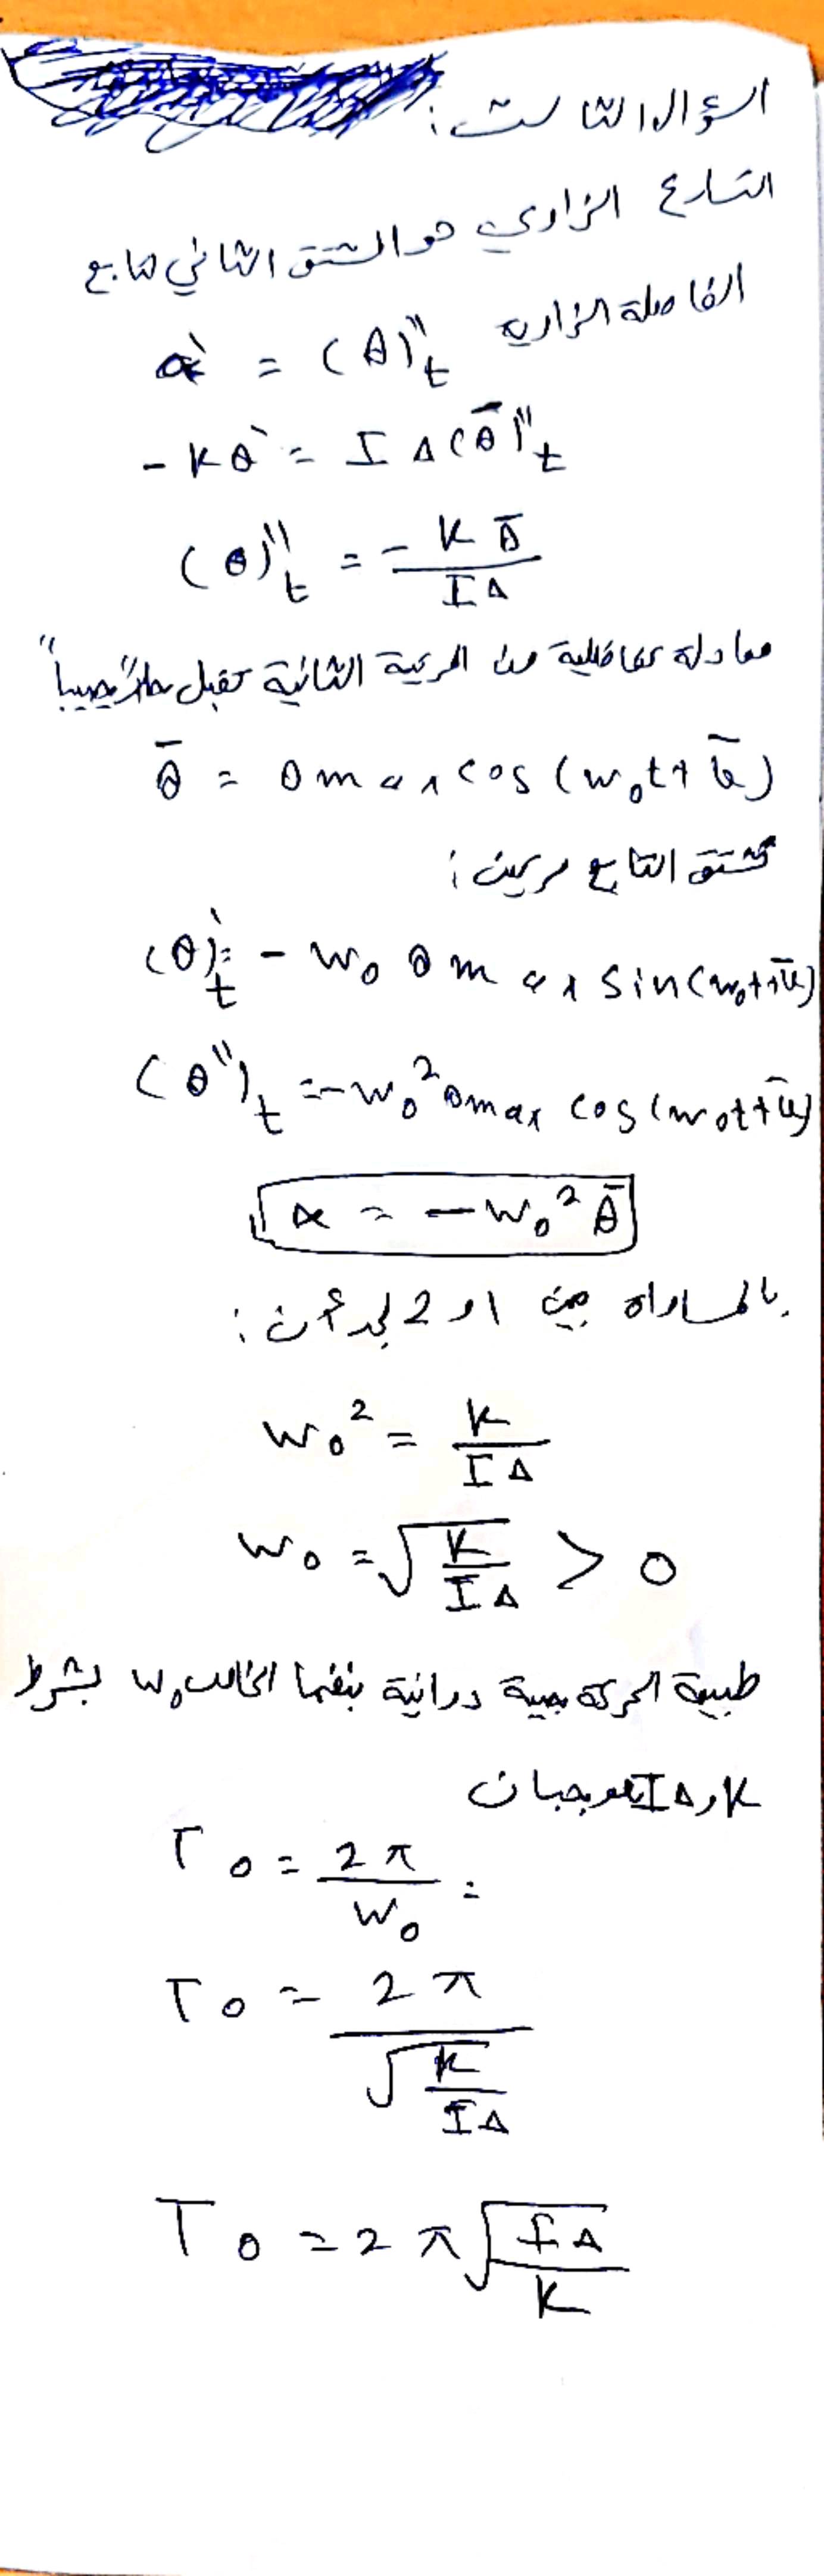 السؤال الثالث:
التسارع الزاوي هو المشتق الثاني لتابع
الفاصلة الزاوية
α = (θ)''t
-kθ = IΔ(θ̄)''t
(θ)''t = -kθ̄/IΔ
معادلة تفاضلية من المرتبة الثانية تقبل حلاً جيبياً"
θ̄ = θmax cos(w₀t+φ̄)
نشتق التابع مرتين:
(θ)'t = -w₀ θmax sin(w₀t+φ̄)
(θ'')t = -w₀²θmax cos(w₀t+φ̄)
α = -w₀²θ̄
بالمساواة بين 1 و 2 نجد أن:
w₀² = k/IΔ
w₀ = √(k/IΔ) > 0
طبيعة الحركة جيبية دورانية نبضها الخاص w₀ بشرط
k و IΔ موجبان
T₀ = 2π/w₀ =
T₀ = 2π/√(k/IΔ)
T₀ = 2π√(IΔ/k)